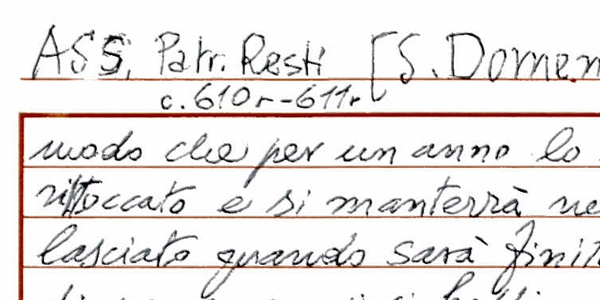 ASS, Patr. Resti [S. Domen
c. 610r-611r
modo che per un anno lo
ristoccato e si manterrà ne
lasciato quando sarà finit